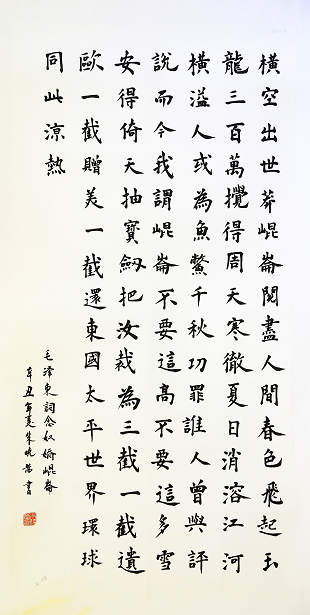 橫空出世莽崐崙閱盡人間春色飛起玉
龍三百萬攪得周天寒徹夏日消溶江河
橫溢人或為魚鱉千秋功罪誰人曾與評
説而今我謂崐崙不要這高不要這多雪
安得倚天抽寶劔把汝裁為三截一截遺
歐一截贈美一截還東國太平世界環球
同此涼熱
毛澤東詞念奴嬌崐崙
辛丑年夏朱曉書